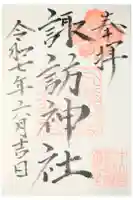 奉拝
諏訪神社
令和七年六月吉日